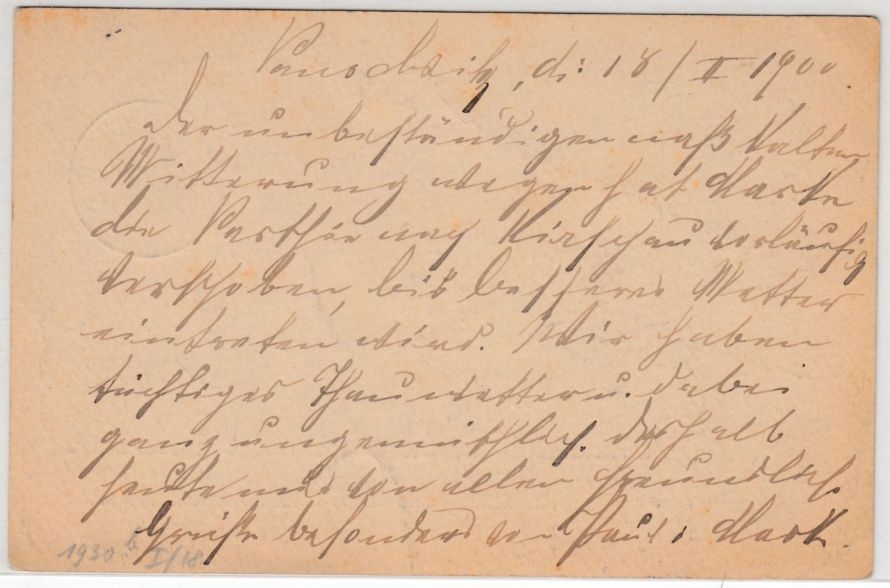 d: 18/II 1900.
Der unbeständigen naß kalten
Witterung wegen hat Marke
die Parthie nach Kirschau vorläufig
verschoben, bis besseres Wetter
eintreten wird. Wir haben
tüchtiges Thauwetter u. dabei
ganz ungemüthlich. Deshalb
heute nur von allen freundlich
Grüße besonders von
1930 I/18